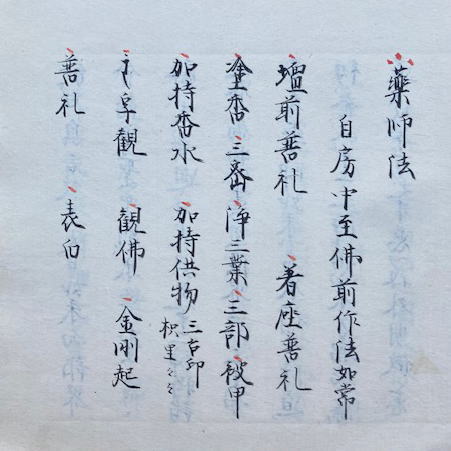 藥師法
自房中至佛前作法如常
壇前普礼 着座普礼
塗香 三密 淨三業 三部 被甲
加持香水 加持供物 三古印
枳里々々
字觀 觀佛 金剛起
普礼 表白